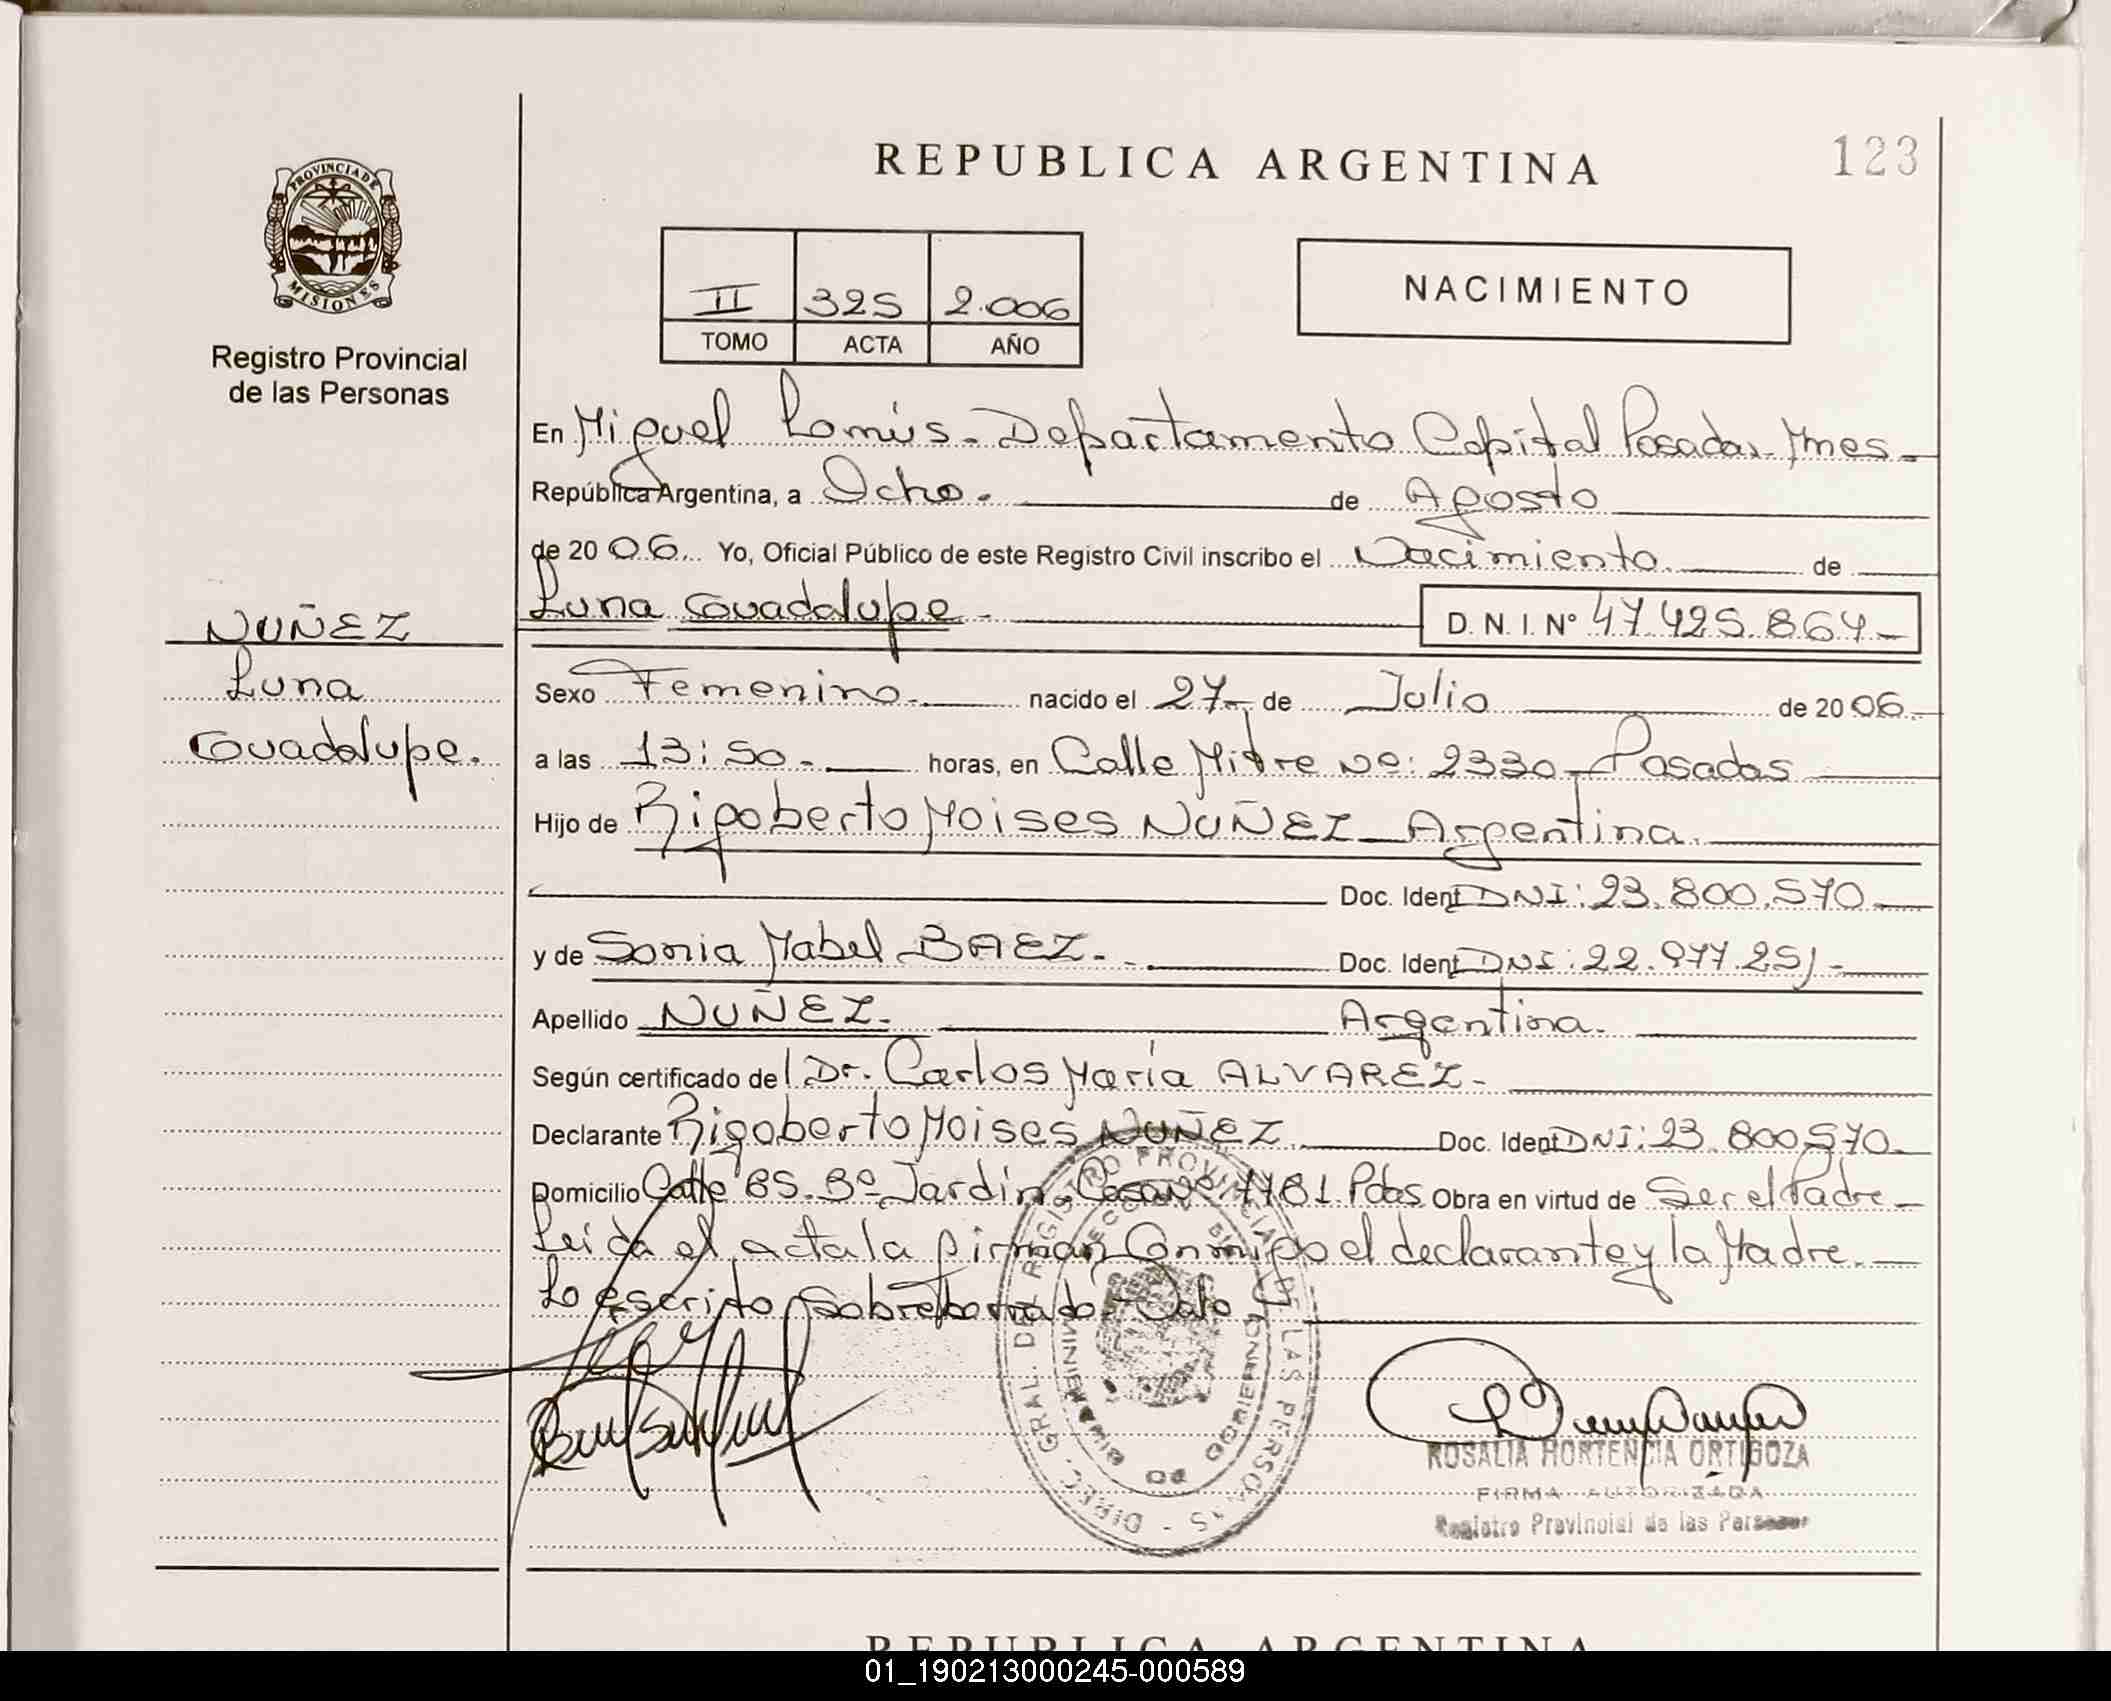 REPUBLICA ARGENTINA
123
PROVINCIA DE
MISIONES
Registro Provincial
de las Personas
II 325 2.006
TOMO ACTA AÑO
NACIMIENTO
En Miguel Lanús - Departamento Capital Posadas Mnes -
República Argentina, a Ocho. de Agosto
de 20 06 Yo, Oficial Público de este Registro Civil inscribo el Nacimiento de
Luna Guadalupe - D. N. I. Nº 47.425.864 -
NUÑEZ
Luna
Guadalupe.
Sexo Femenino. nacido el 27 - de Julio de 20 06 -
a las 13:50 - horas, en Calle Mitre Nº: 2330 - Posadas
Hijo de Rigoberto Moises NUÑEZ - Argentina.
Doc. Ident DNI: 23.800.570
y de Sonia Mabel BAEZ - Doc. Ident DNI: 22.977.251 -
Apellido NUÑEZ - Argentina.
Según certificado del Dr. Carlos María ALVAREZ -
Declarante Rigoberto Moises NUÑEZ Doc. Ident DNI: 23.800.570 -
Domicilio Calle 85 - Bº Jardín - Casa Nº 7781 Pdas Obra en virtud de Ser el Padre -
Leida el acta la firman Conmigo el declarante y la Madre. -
Lo escrito Sobreborrado - Vale -
DIREC. GRAL. DEL REGISTRO PROVINCIAL DE LAS PERSONAS
ROSALIA HORTENCIA ORTIGOZA
FIRMA AUTORIZADA
Registro Provincial de las Personas
REPUBLICA ARGENTINA
01_190213000245-000589